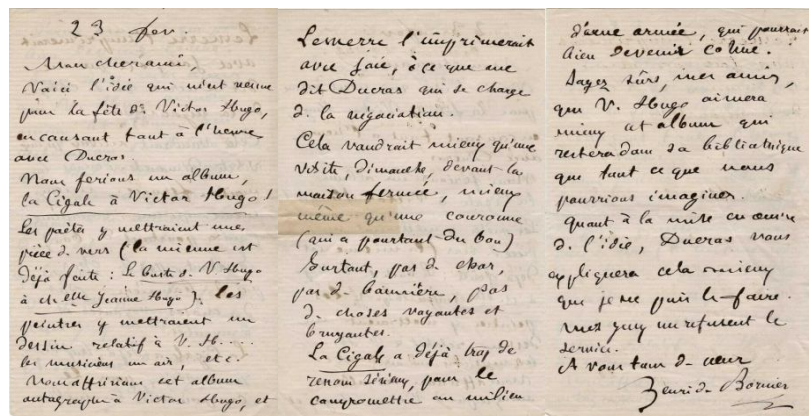 23 fév.
Mon cher ami,
Voici l'idée qui m'est venue
pour la fête de Victor Hugo,
en causant tout à l'heure
avec Ducros.
Nous ferions un album,
la Cigale à Victor Hugo!
Les poètes y mettraient une
pièce de vers (la mienne est
déjà faite : Le buste de V. Hugo
à Melle Jeanne Hugo). les
peintres y mettraient un
dessin relatif à V. H.....
les musiciens un air, etc.
Nous offririons cet album
autographe à Victor Hugo, et
Lemerre l'imprimerait
avec joie, à ce que me
dit Ducros qui se charge
de la négociation.
Cela vaudrait mieux qu'une
visite, dimanche, devant la
maison fermée, mieux
même qu'une couronne
(qui a pourtant du bon)
Surtout, pas de char,
pas de bannière, pas
de choses voyantes et
bruyantes.
La Cigale a déjà trop de
renom sérieux, pour le
compromettre au milieu
d'une armée, qui pourrait
bien devenir cohue.
Soyez sûrs, mes amis,
que V. Hugo aimera
mieux cet album qui
restera dans sa bibliothèque
que tout ce que nous
pourrions imaginer.
Quant à la mise en œuvre
de l'idée, Ducros vous
expliquera cela mieux
que je ne puis le faire.
mes yeux me refusent le
service.
A vous tous de cœur
Henri de Bornier